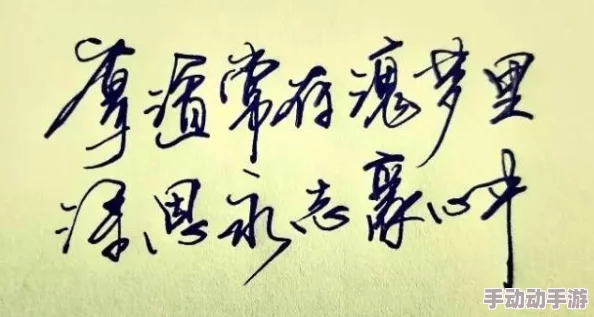 谊常存魂梦里
深恩永志心中
手动动手游